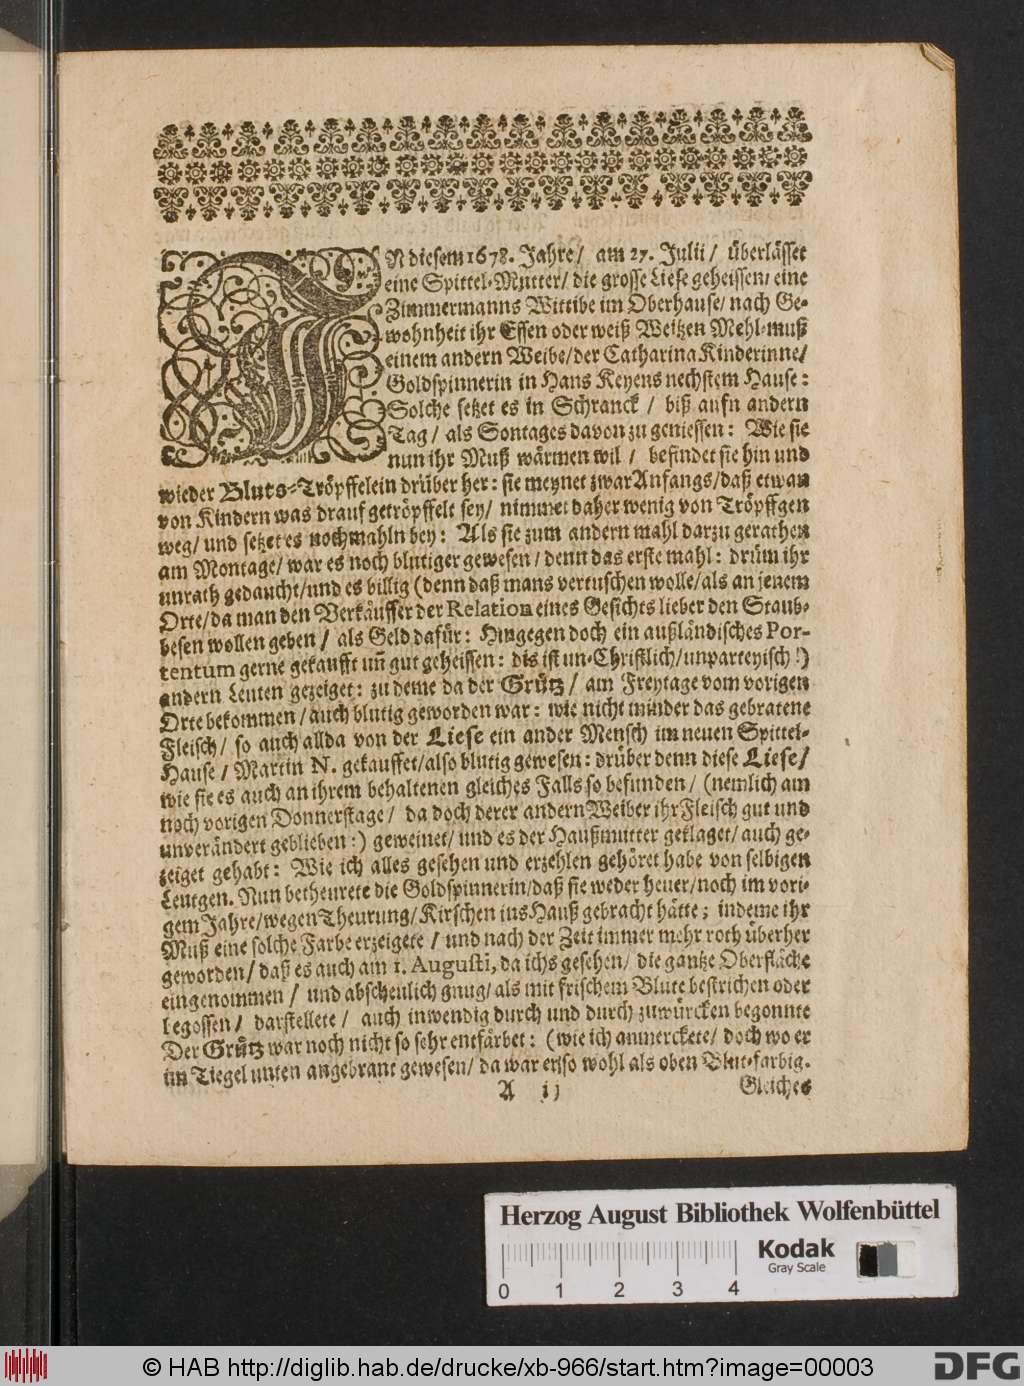 IN diesem 1678. Jahre / am 27. Julii / überlässet
eine Spittel-Mutter / die grosse Liese geheissen / eine
Zimmermanns Wittibe im Oberhause / nach Ge-
wohnheit ihr Essen oder weiß Weitzen Mehl-muß
einem andern Weibe / der Catharina Kinderinne /
Goldspinnerin in Hans Keyens nechstem Hause :
Solche setzet es in Schranck / biß aufn andern
Tag / als Sontages davon zu geniessen : Wie sie
nun ihr Muß wärmen wil / befindet sie hin und
wieder Bluts-Tröpffelein drüber her : sie meynet zwar Anfangs / daß etwan
von Kindern was drauf getröpffelt sey / nimmet daher wenig von Tröpffgen
weg / und setzet es nochmahln bey : Als sie zum andern mahl darzu gerathen
am Montage / war es noch blutiger gewesen / denn das erste mahl : drüm ihr
unrath gedaucht / und es billig (denn daß mans vertuschen wolle / als an jenem
Orte / da man den Verkäuffer der Relation eines Gesichts lieber den Staub-
besen wollen geben / als Geld dafür : Hingegen doch ein außländisches Por-
tentum gerne gekaufft uñ gut geheissen : dis ist un-Christlich / unparteyisch !)
andern Leuten gezeiget : zu deme da der Grütz / am Freytage vom vorigen
Orte bekommen / auch blutig geworden war : wie nicht minder das gebratene
Fleisch / so auch allda von der Liese ein ander Mensch im neuen Spittel-
Hause / Martin N. gekauffet / also blutig gewesen : drüber denn diese Liese /
wie sie es auch an ihrem behaltenen gleiches Falls so befunden / (nemlich am
noch vorigen Donnerstage / da doch derer andern Weiber ihr Fleisch gut und
unverändert geblieben :) geweinet / und es der Haußmutter geklaget / auch ge-
zeiget gehabt : Wie ich alles gesehen und erzehlen gehöret habe von selbigen
Leutgen. Nun betheurete die Goldspinnerin / daß sie weder heuer / noch im vori-
gem Jahre / wegen Theurung / Kirschen ins Hauß gebracht hätte ; indeme ihr
Muß eine solche Farbe erzeigete / und nach der Zeit immer mehr roth überher
geworden / daß es auch am 1. Augusti, da ichs gesehen / die gantze Oberfläche
eingenommen / und abscheulich gnug / als mit frischem Blute bestrichen oder
begossen / darstellete / auch inwendig durch und durch zuwürcken begonnte
Der Grütz war noch nicht so sehr entfärbet : (wie ich anmerckete / doch wo er
im Tiegel unten angebrant gewesen / da war er so wohl als oben Blut-farbig.
A ij Gleiches
Herzog August Bibliothek Wolfenbüttel
Kodak
Gray Scale
0 1 2 3 4
© HAB http://diglib.hab.de/drucke/xb-966/start.htm?image=00003
DFG